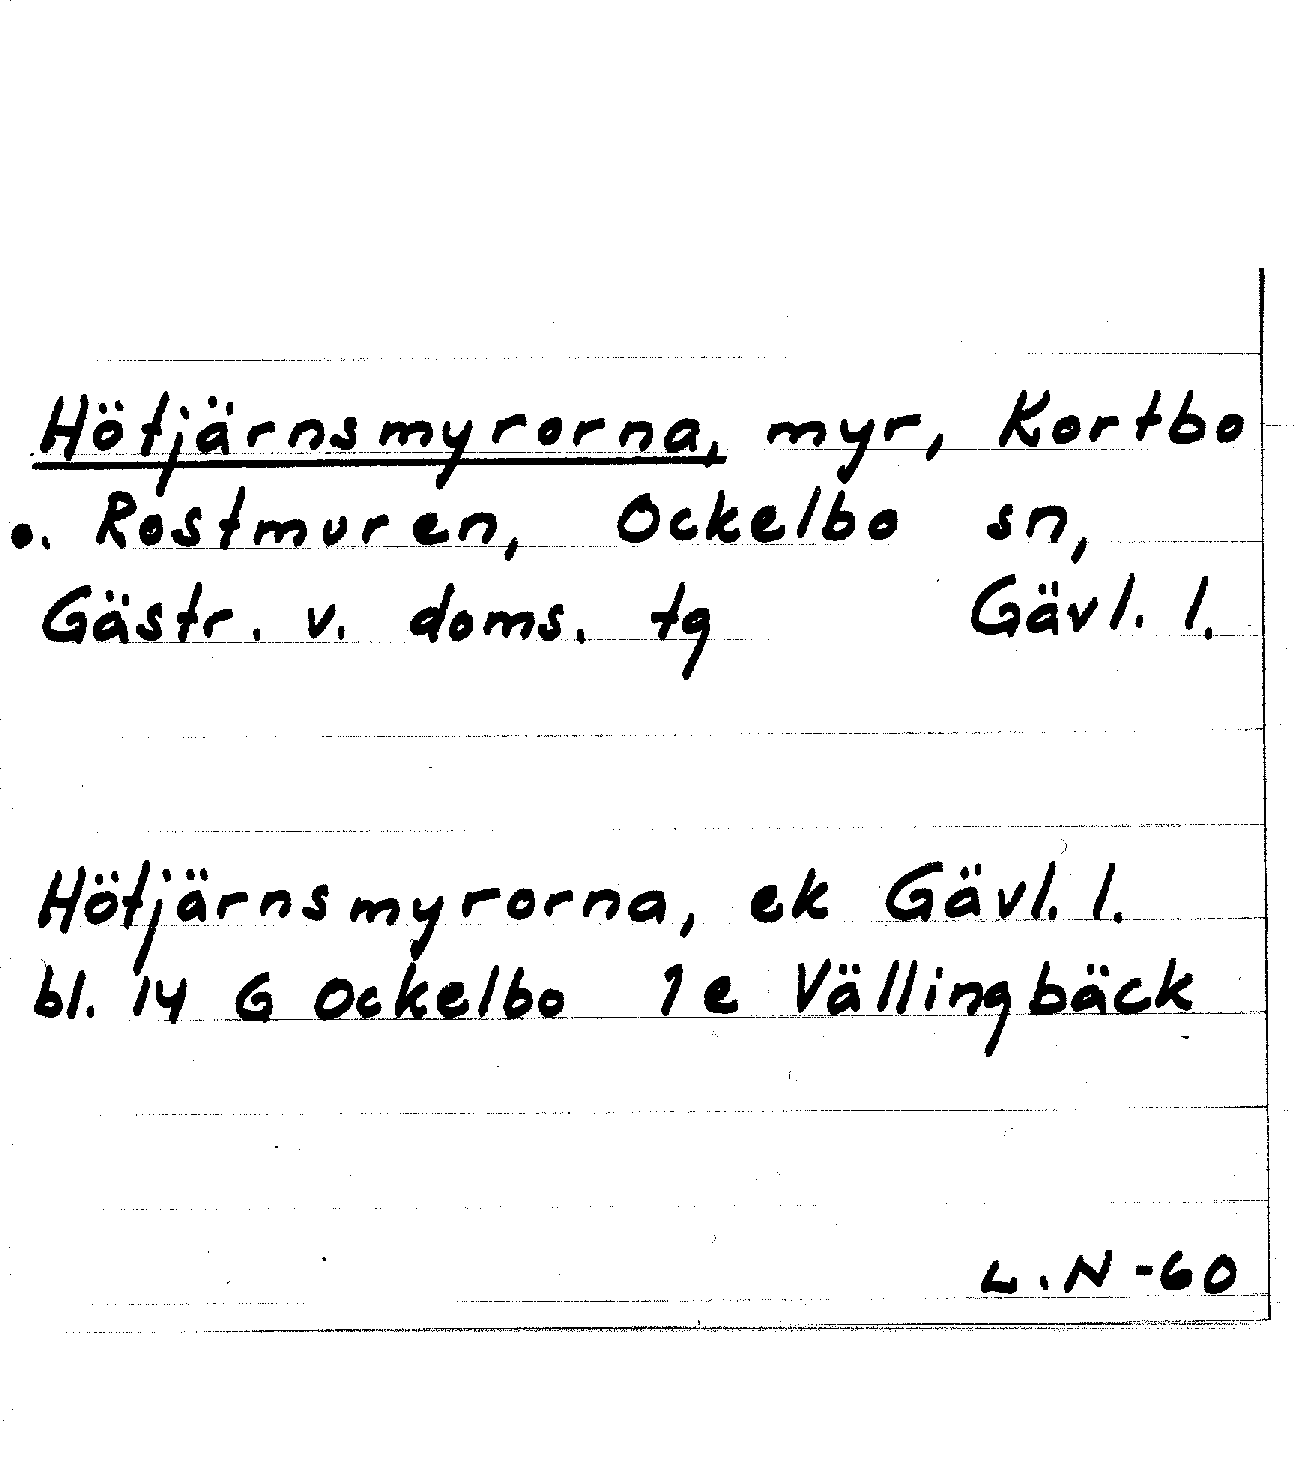 Hötjärnsmyrorna, myr, Kortbo
o. Rostmuren, Ockelbo sn,
Gästr. v. doms. tg Gävl. l.
Hötjärnsmyrorna, ek Gävl. l.
bl. 14 G Ockelbo 1e Vällingbäck
L.N -60